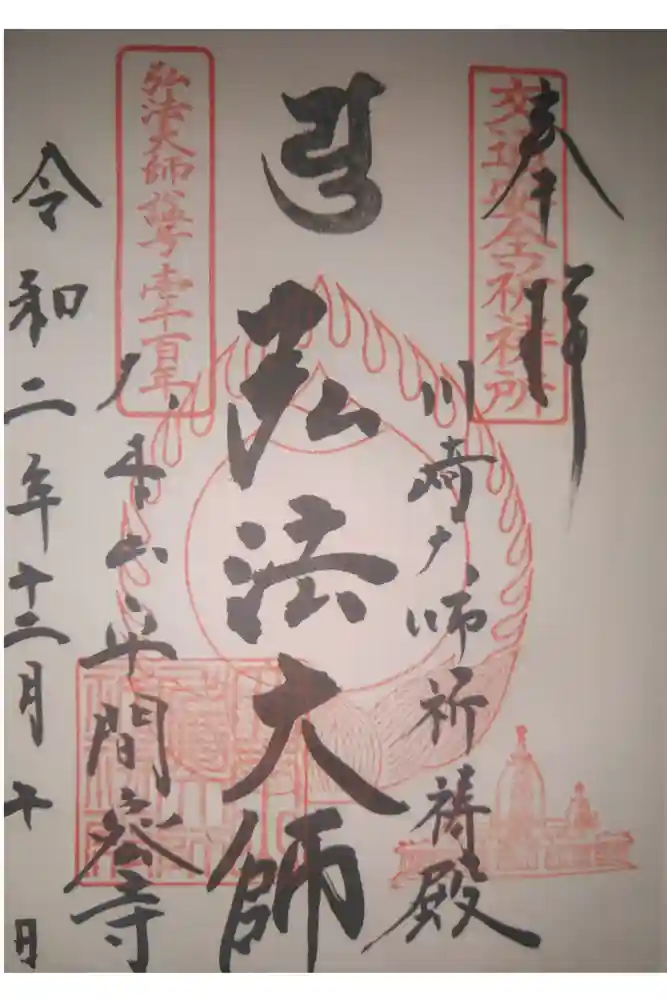 奉拝
交通安全祈祷所
川崎大師祈祷殿
弘法大師
弘法大師諡号壱千百年
大本山平間密寺
令和二年十二月十日